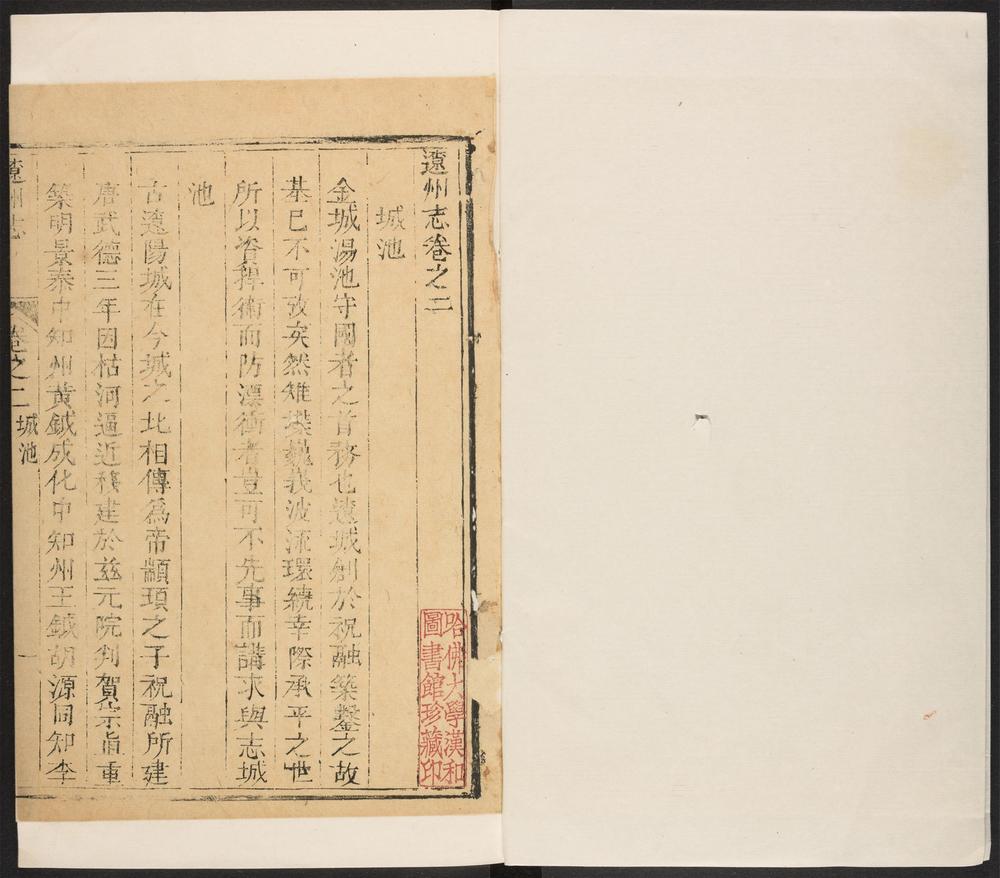 遼州志卷之二
城池
金城湯池守國者之首務也遼城創於祝融築鑿之故
基已不可攷矣然雉堞巍峩波流環繞幸際承平之世
所以資捍衛而防漂衝者豈可不先事而講求與志城
池
古遼陽城在今城之北相傳爲帝顓頊之子祝融所建
唐武德三年因枯河逼近移建於兹元院判賀宗眞重
築明景泰中知州黄鉞成化中知州王鉞胡源同知李
遼州志
卷之二
城池
一
哈佛大學漢和
圖書館珍藏印